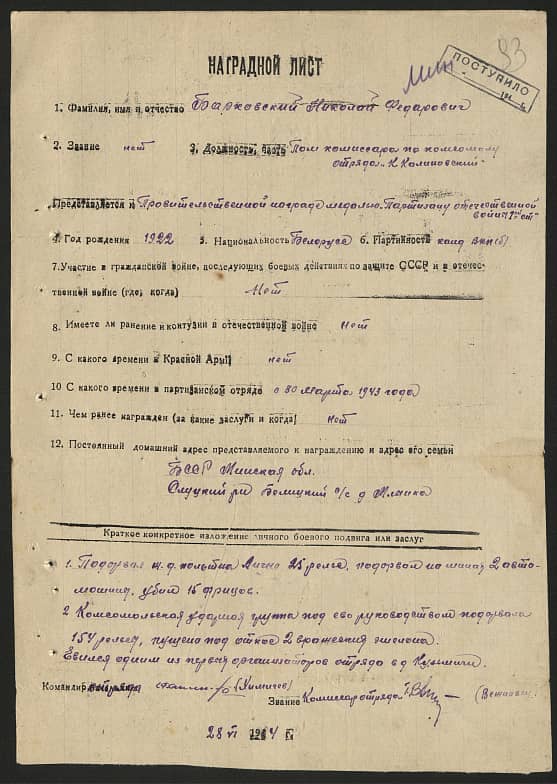 93
ПОСТУПИЛО
НАГРАДНОЙ ЛИСТ
1. Фамилия, имя и отчество Барковский Николай Федарович
2. Звание нет 3. Должность, часть Пом комиссара по комсомолу
отряда К Калиновский
Представляется к Правительственной награде медалью Партизану отечественной
войны 1й ст
4. Год рождения 1922 5. Национальность Белорусс 6. Партийность канд ВКП(б)
7. Участие в гражданской войне, последующих боевых действиях по защите СССР и в отечес-
твенной войне (где, когда) Нет
8. Имеете ли ранение и контузии в отечественной войне Нет
9. С какого времени в Красной Армии нет
10 С какого времени в партизанском отряде с 30 марта 1943 года
11. Чем ранее награжден (за какие заслуги и когда) нет
12. Постоянный домашний адрес представляемого к награждению и адрес его семьи
БССР Минская обл.
Слуцкий р-н Белицкий с/с д
Краткое конкретное изложение личного боевого подвига или заслуг
1. Подорвал ж.д. полытна Лично 25 рельс, подорвал на минах 2 авто-
машины, убил 15 фрицов.
2 Комсомольская ударная группа под его руководством подорвала
154 рельсы, пущено под откос 2 вражеских эшелона.
Евился одним из первых организаторов отряда в д
Командир (Химичев)
Звание Комиссар отряда
28 VI 1944 г.